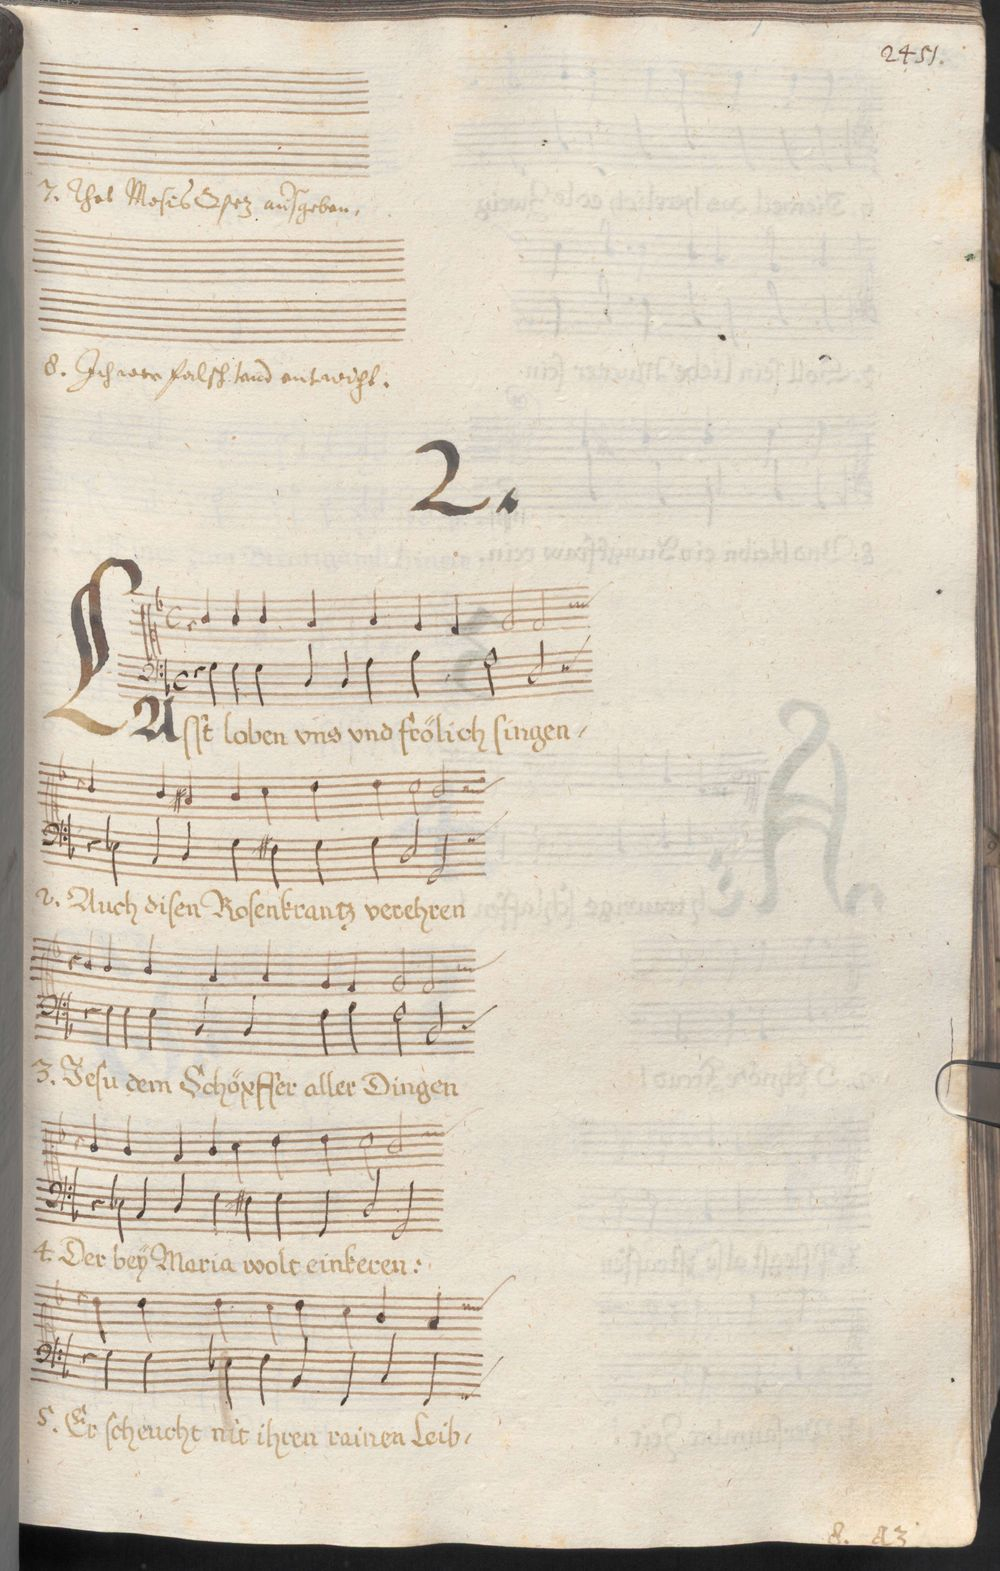 2451.
7. Thas Mosis Gsez außgeben,
8. Ich wer falsch tand entwicht.
2.
LAsst loben vns vnd frölich singen,
2. Auch disen Rosenkrantz verehren
3. Jesu dem Schöpffer aller Dingen
4. Der bey Maria wolt einkeren:
5. Er scheucht nit ihren rainen Leib,
8. 83